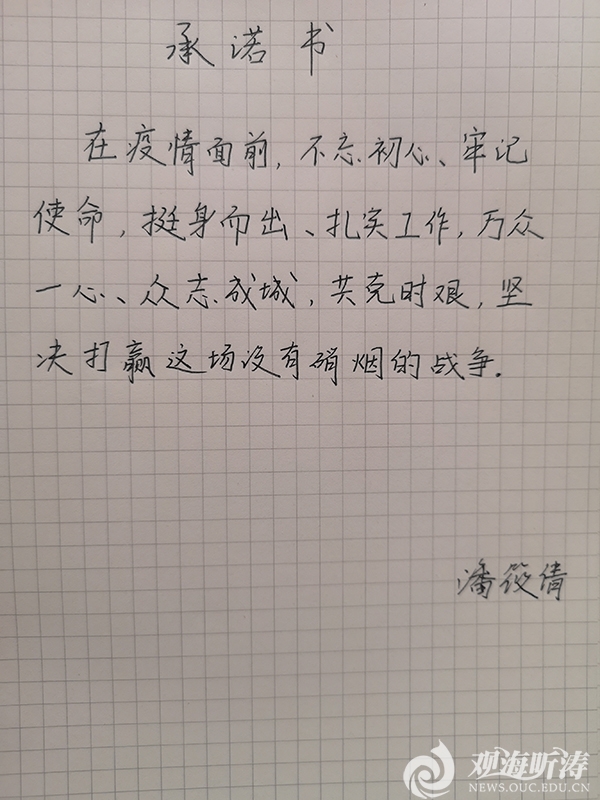 承诺书
在疫情面前,不忘初心、牢记
使命,挺身而出、扎实工作,万众
一心、众志成城,共克时艰,坚
决打赢这场没有硝烟的战争.
潘筱倩
观海听涛
NEWS.OUC.EDU.CN